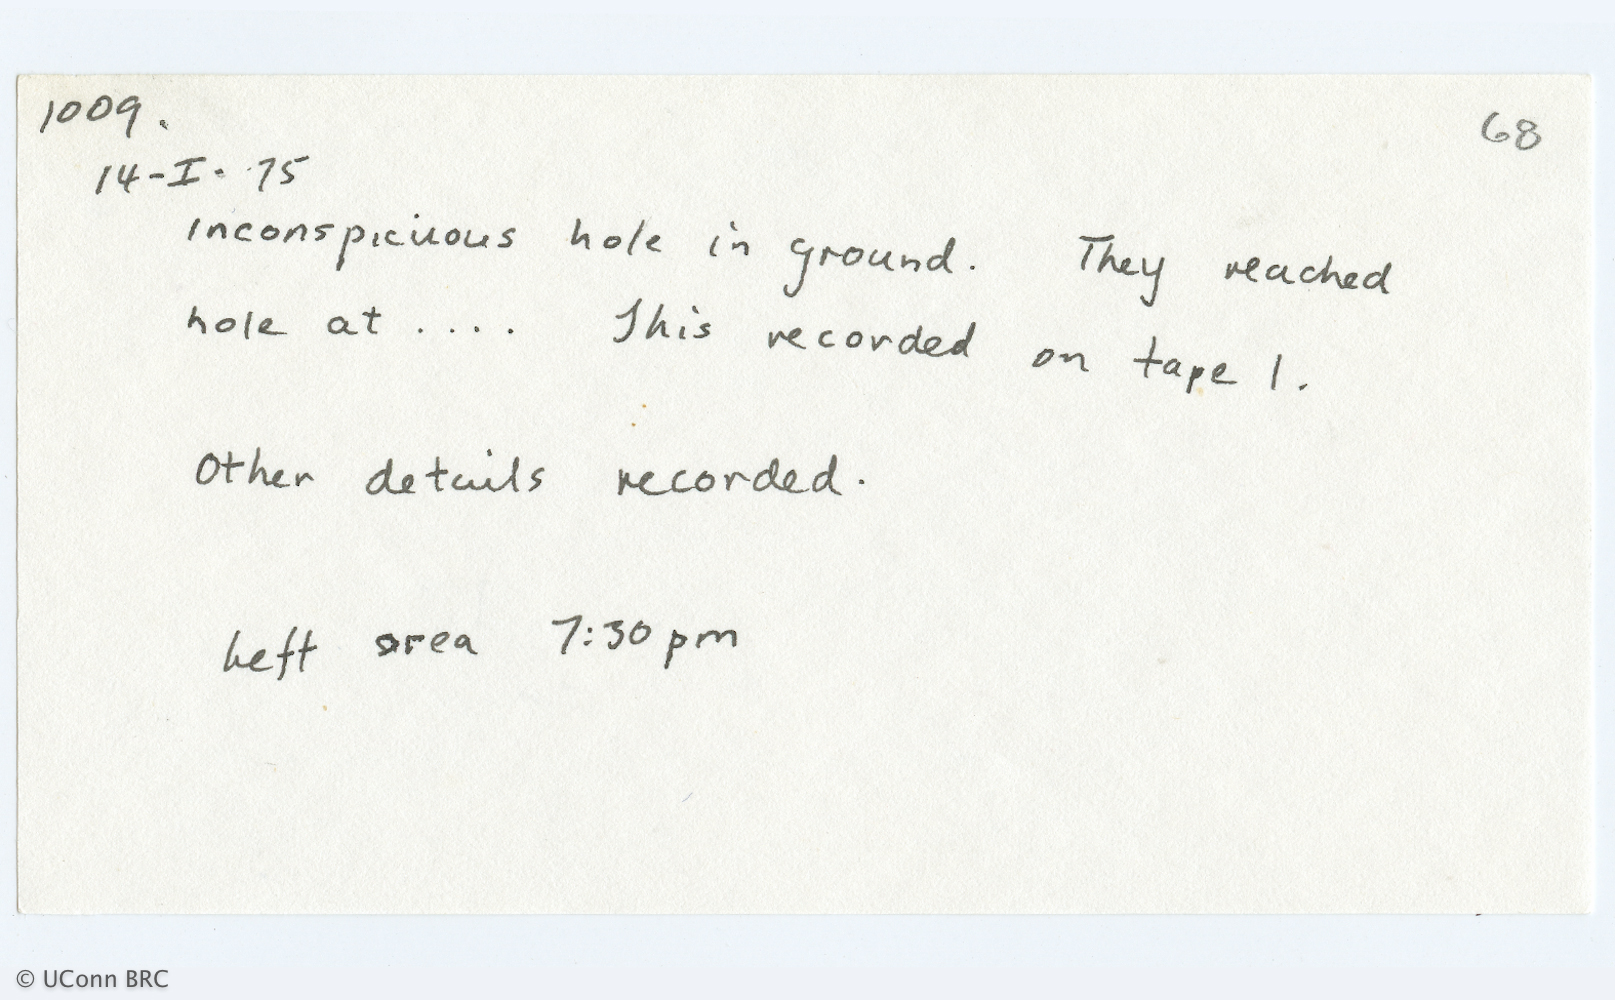 1009.
68
14-I-75
inconspicuous hole in ground. They reached
hole at .... This recorded on tape 1.
Other details recorded.
Left area 7:30 pm
© UConn BRC